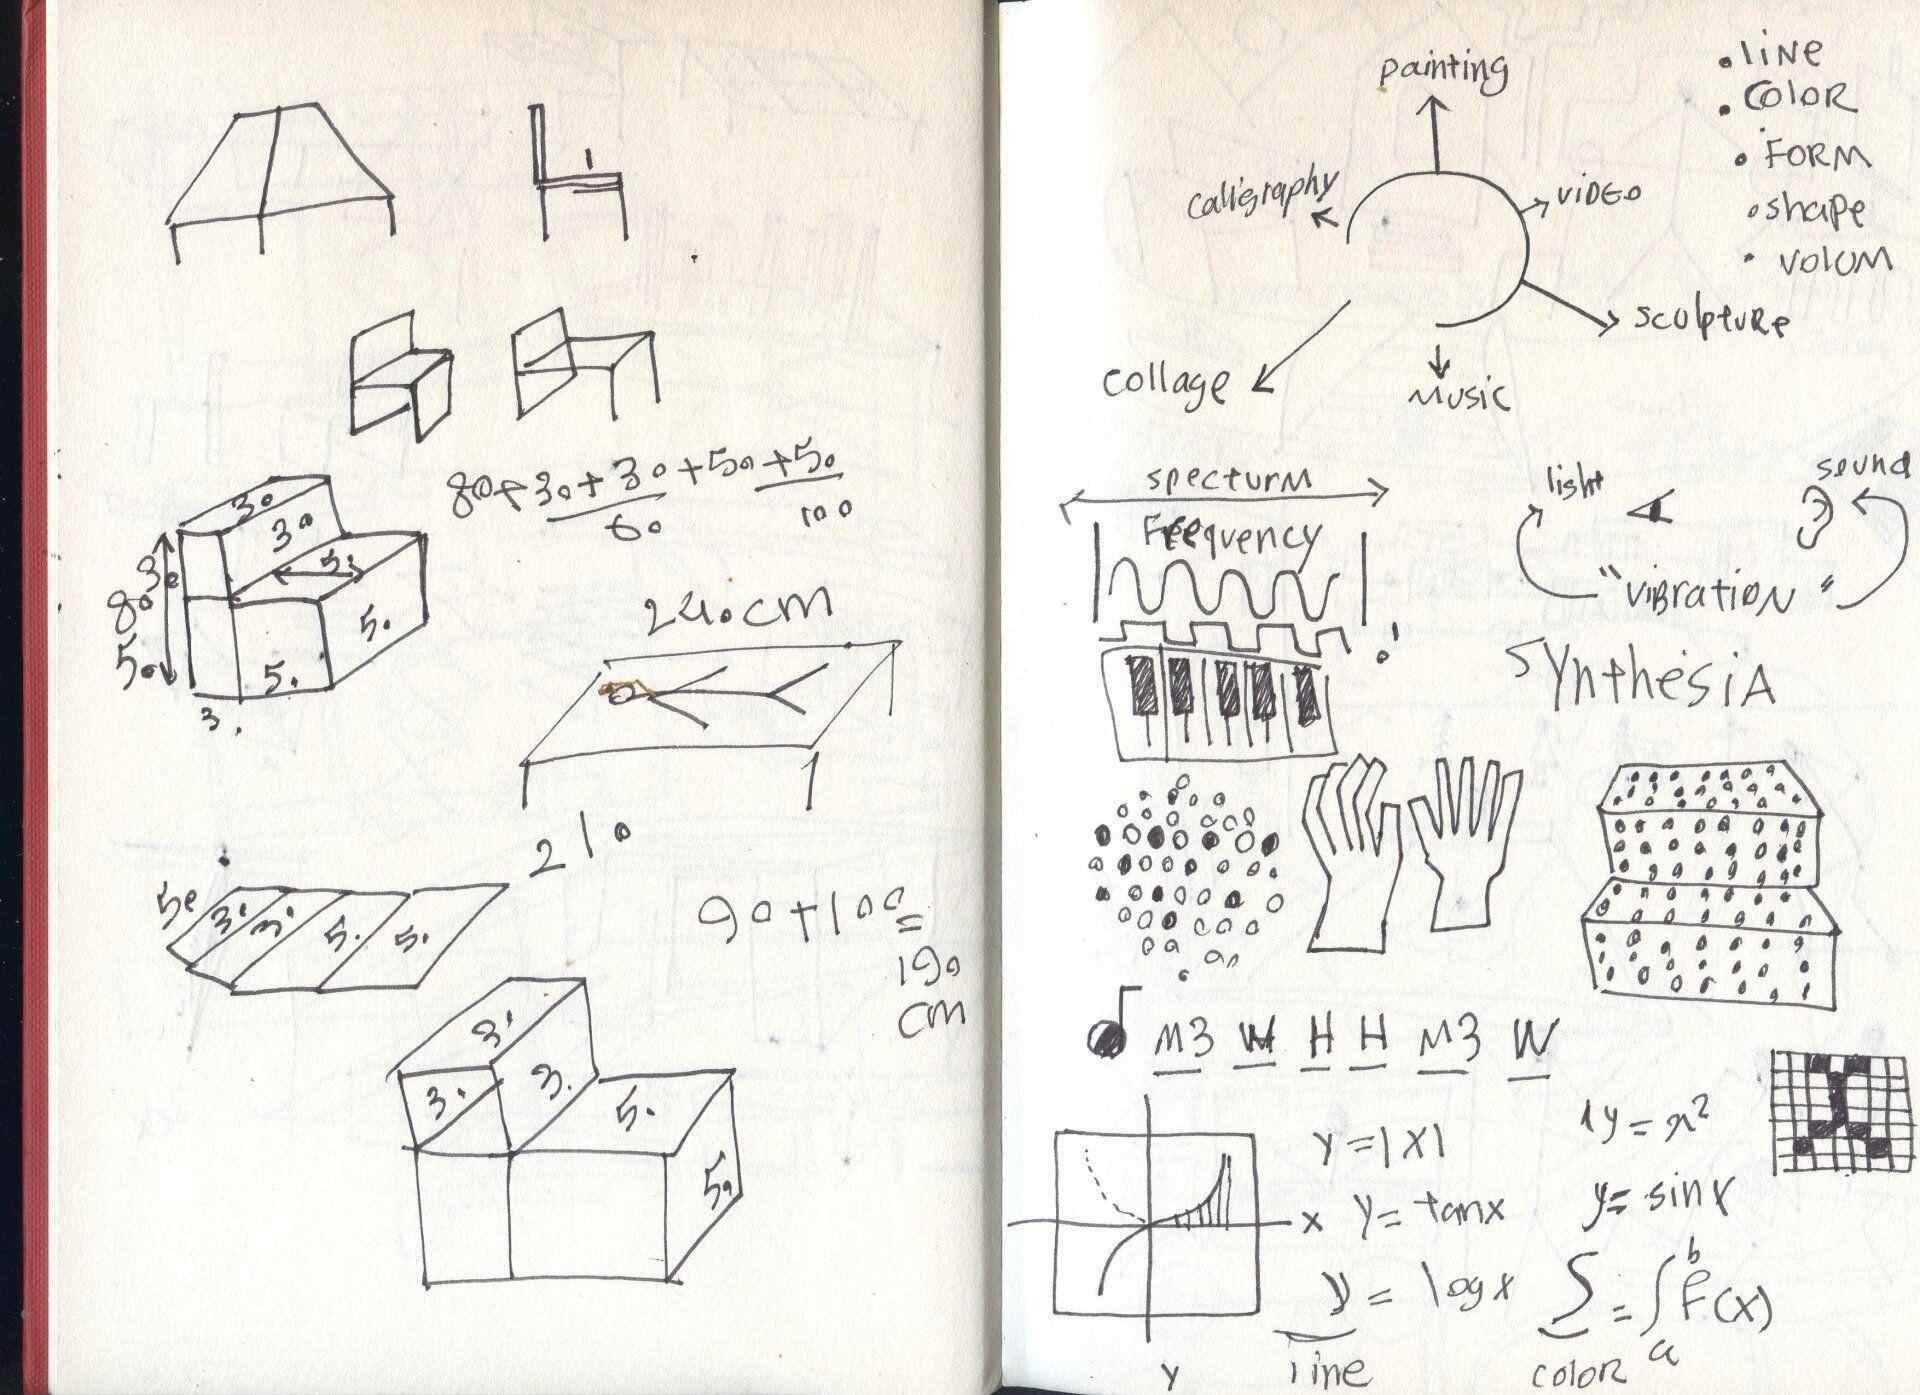 80+30+30+50+50
60
100
30
30
50
30
80
50
50
50
30
240cm
210
50
30
30
50
50
90+100=
190
cm
30
30
30
50
50
painting
caligraphy
VIDEO
sculpture
Music
collage
• line
• Color
• FORM
• shape
• volum
specturm
Freequency
light
sound
"vibration"
synthesiA
!
M3 W H H M3 W
y=|x|
y=x²
x
y=tanx
y=sinx
y=logx
S=∫ᵇₐf(x)
y
line
color